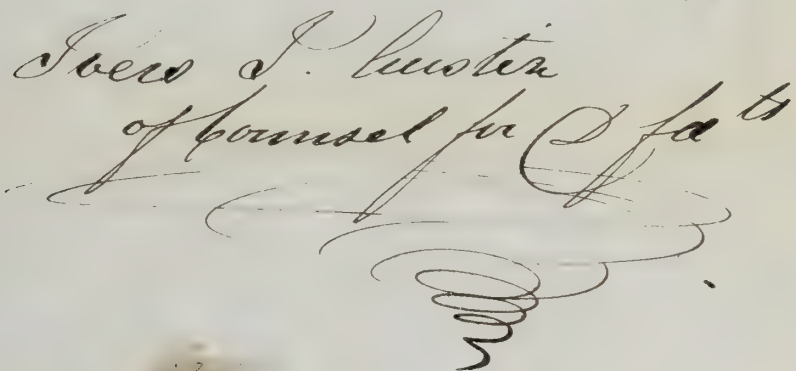 Ivers J. Austin
of Counsel for Dfdts